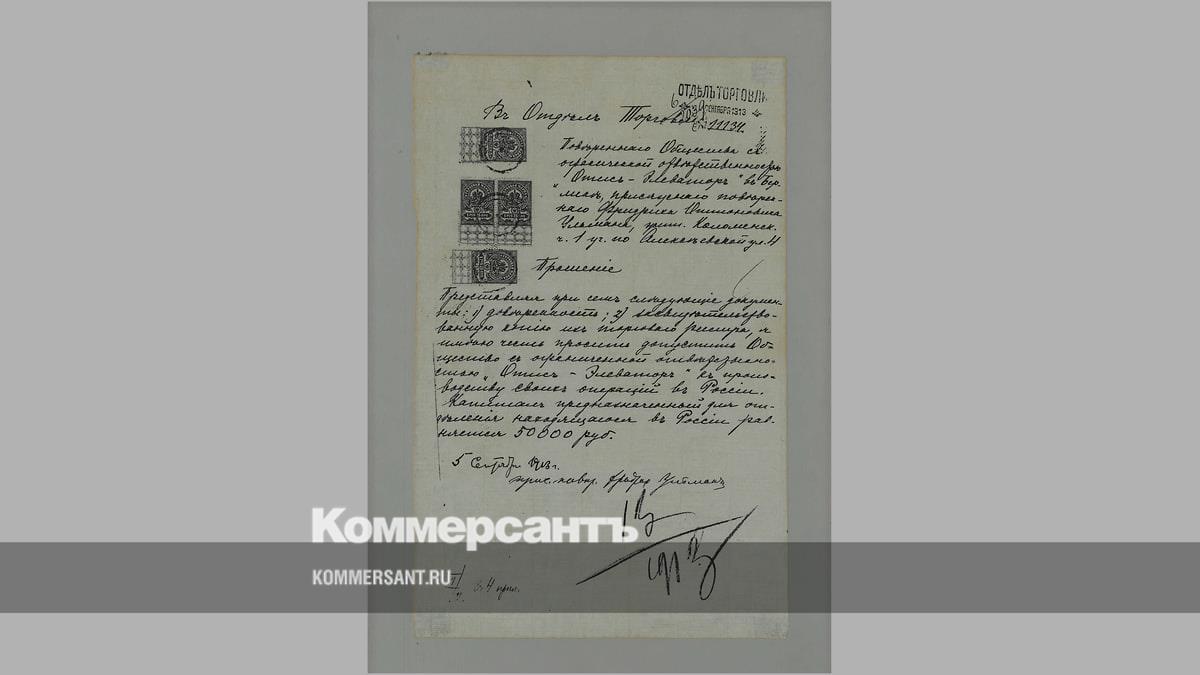 ОТДѢЛЪ ТОРГОВЛИ
СЕНТЯБРЯ 1913
Въ Отдѣлъ Торговли
11134.
Повѣреннаго Общества съ
ограниченной отвѣтственностью
„Отисъ-Элеваторъ" въ Бер-
линѣ, присяжнаго повѣрен-
наго Фридриха
Ульмана, Коломенск.
ч. 1 уч. по Алексѣевской ул. 4
Прошеніе
Представляя при семъ слѣдующіе докумен-
ты: 1) довѣренность; 2) засвидѣтельство-
ванную копію изъ торговаго регистра, я
имѣю честь просить допустить Об-
щество съ ограниченной отвѣтственно-
стью „Отисъ-Элеваторъ" къ произ-
водству своихъ операцій въ Россіи.
Капиталъ предназначенный для от-
дѣленія находящагося въ Россіи рав-
няется 50000 руб.
5 Сентября 1913 г.
прис. повѣр. Ульманъ
Коммерсантъ
KOMMERSANT.RU